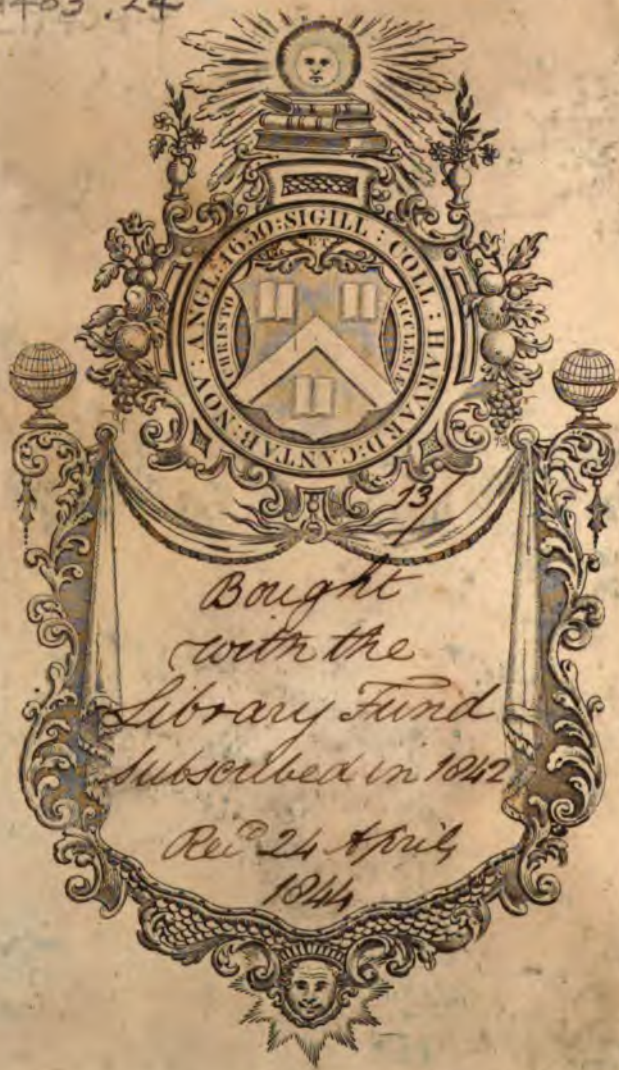 SIGILL : COLL : HARVARD : CANTAB : NOV : ANGL : 1650 :
ET
CHRISTO
ECCLESIÆ
13/
Bought
with the
Library Fund
subscribed in 1842
Rec.d 24 April,
1844